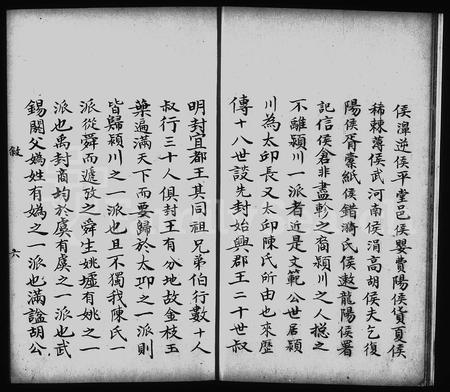 侯澤逆侯平堂邑侯嬰費陽侯賀夏侯
稀棘蒲侯武河南侯涓高胡侯夫乞復
陽侯胥橐紙侯錯漪氏侯遬龍陽侯署
記信侯倉非盡軫之裔潁川之人揔之
不離潁川一派者近是文範公世居潁
川為太邱長又太邱陳氏所由也來歷
傳十八世談先封始興郡王二十世叔
明封宜都王其同祖兄弟伯行數十人
叔行三十人俱封王有分地故金枝玉
葉遍滿天下而要歸於太邱之一派則
皆歸潁川之一派也且不獨我陳氏一
派從舜而遞攷之舜生姚墟有姚之一
派也禹封商均於虞有虞之一派也武
錫閼父媯姓有媯之一派也滿諡胡公
敘
六